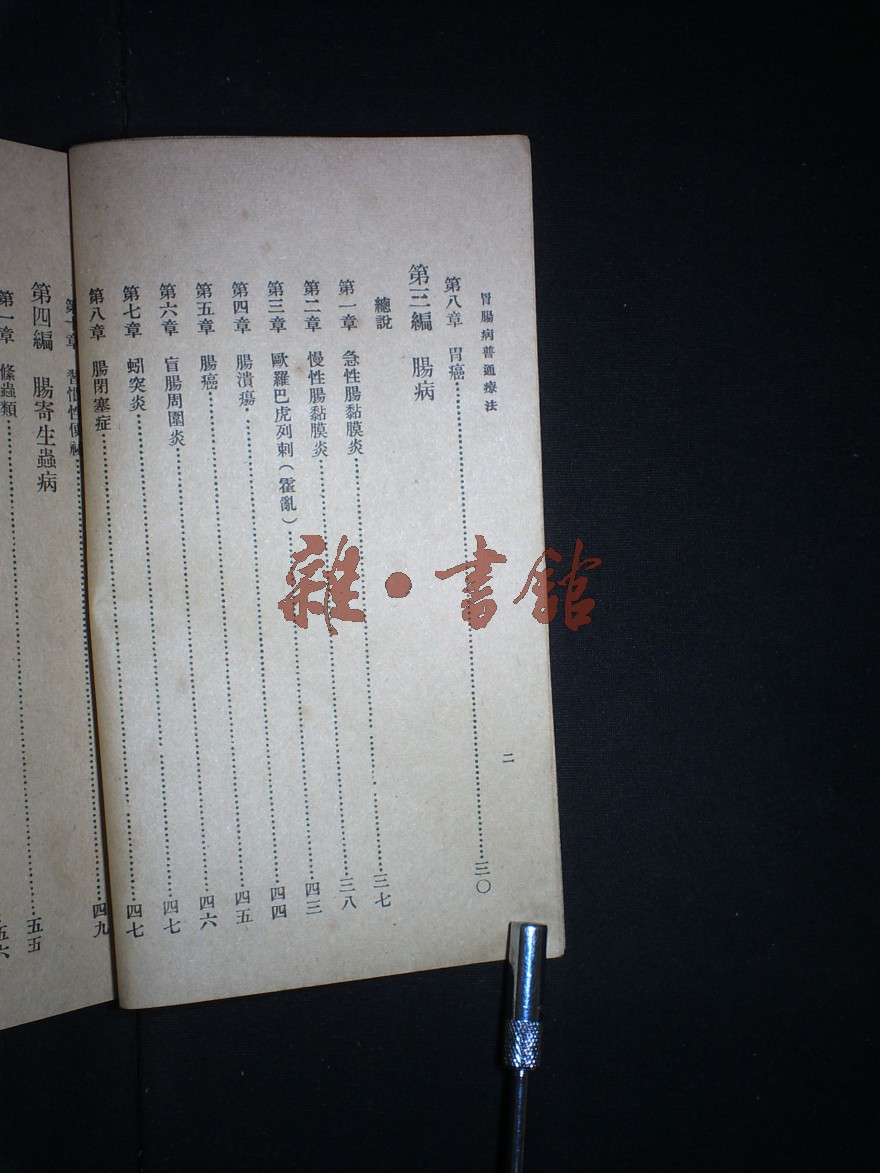 胃腸病普通療法
二
第八章 胃癌……三〇
第三編 腸病
總說
第一章 急性腸黏膜炎……三七
第二章 慢性腸黏膜炎……三八
第三章 歐羅巴虎列刺(霍亂)……四三
第四章 腸潰瘍……四四
第五章 腸癌……四五
第六章 盲腸周圍炎……四六
第七章 蚓突炎……四七
第八章 腸閉塞症……四七
習慣性便……四九
第四編 腸寄生蟲病
第一章 條蟲類……五五
五六
雜·書館